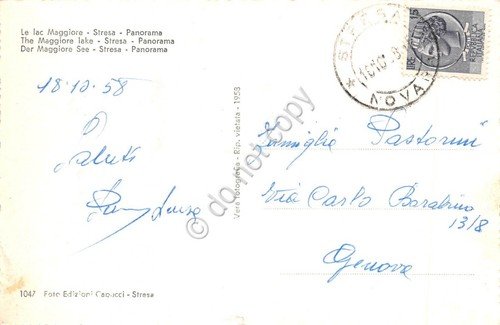 Le lac Maggiore - Stresa - Panorama
The Maggiore lake - Stresa - Panorama
Der Maggiore See - Stresa - Panorama
18.10.58
Saluti
Luisa
Vera fotografia - Rip. vietata - 1958
do not copy
STRESA
NOVARA
15
Famiglia Pastorini
Via Carlo Barabino
13/8
Genova
1047 Foto Edizioni Capucci - Stresa